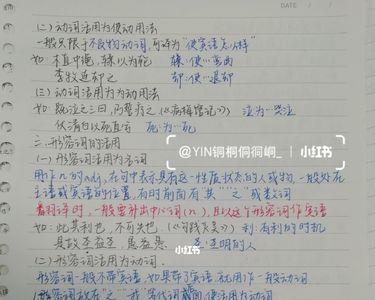 DATE
(二)动词活用为使动用法
一般只限于不及物动词,可译为"使宾语怎么样"
如:木直中绳,輮以为轮 輮:使…弯曲
李牧连却之 却:使…退却
(三)动词活用为为动用法
如:既泣之三日,乃誓疗之《病梅馆记》 泣:为…哭泣
伏清白以死直兮 死:为…死
三、形容词的活用
(一)形容词活用为名词
用作n的adj,在句中表示具有这一性质状态的人或物,一般处在
主语或宾语的位置,有时前面有"其""之"或数词
翻译时,一般要补出中心词(n),且以这个形容词作定语
如:此其利也,不可失也《勾践灭吴》 利:有利的时机
是故圣益圣,愚益愚。 圣:圣明的人
(二)形容词活用为动词.
形容词一般不带宾语,如果带了宾语,就用作一般动词
@YIN铜桐侗徊峒_
小红书
小红书